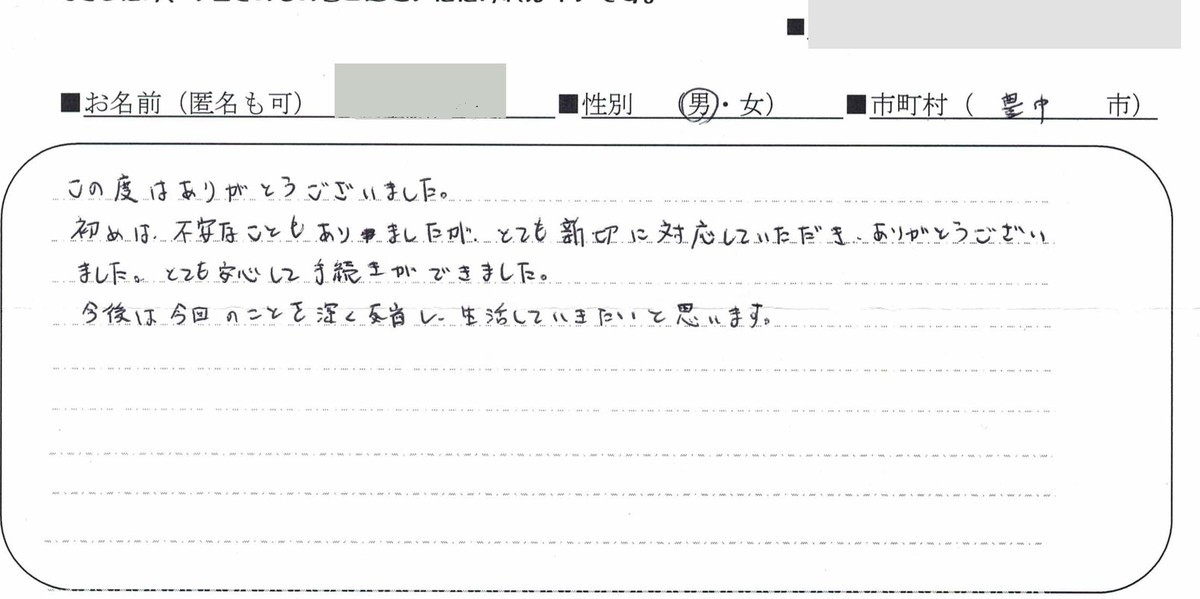 ■お名前（匿名も可） ■性別 （男・女） ■市町村（ 豊中 市）
この度はありがとうございました。
初めは、不安なこともありましたが、とても親切に対応していただき、ありがとうござい
ました。とても安心して手続きができました。
今後は今回のことを深く反省し、生活していきたいと思います。